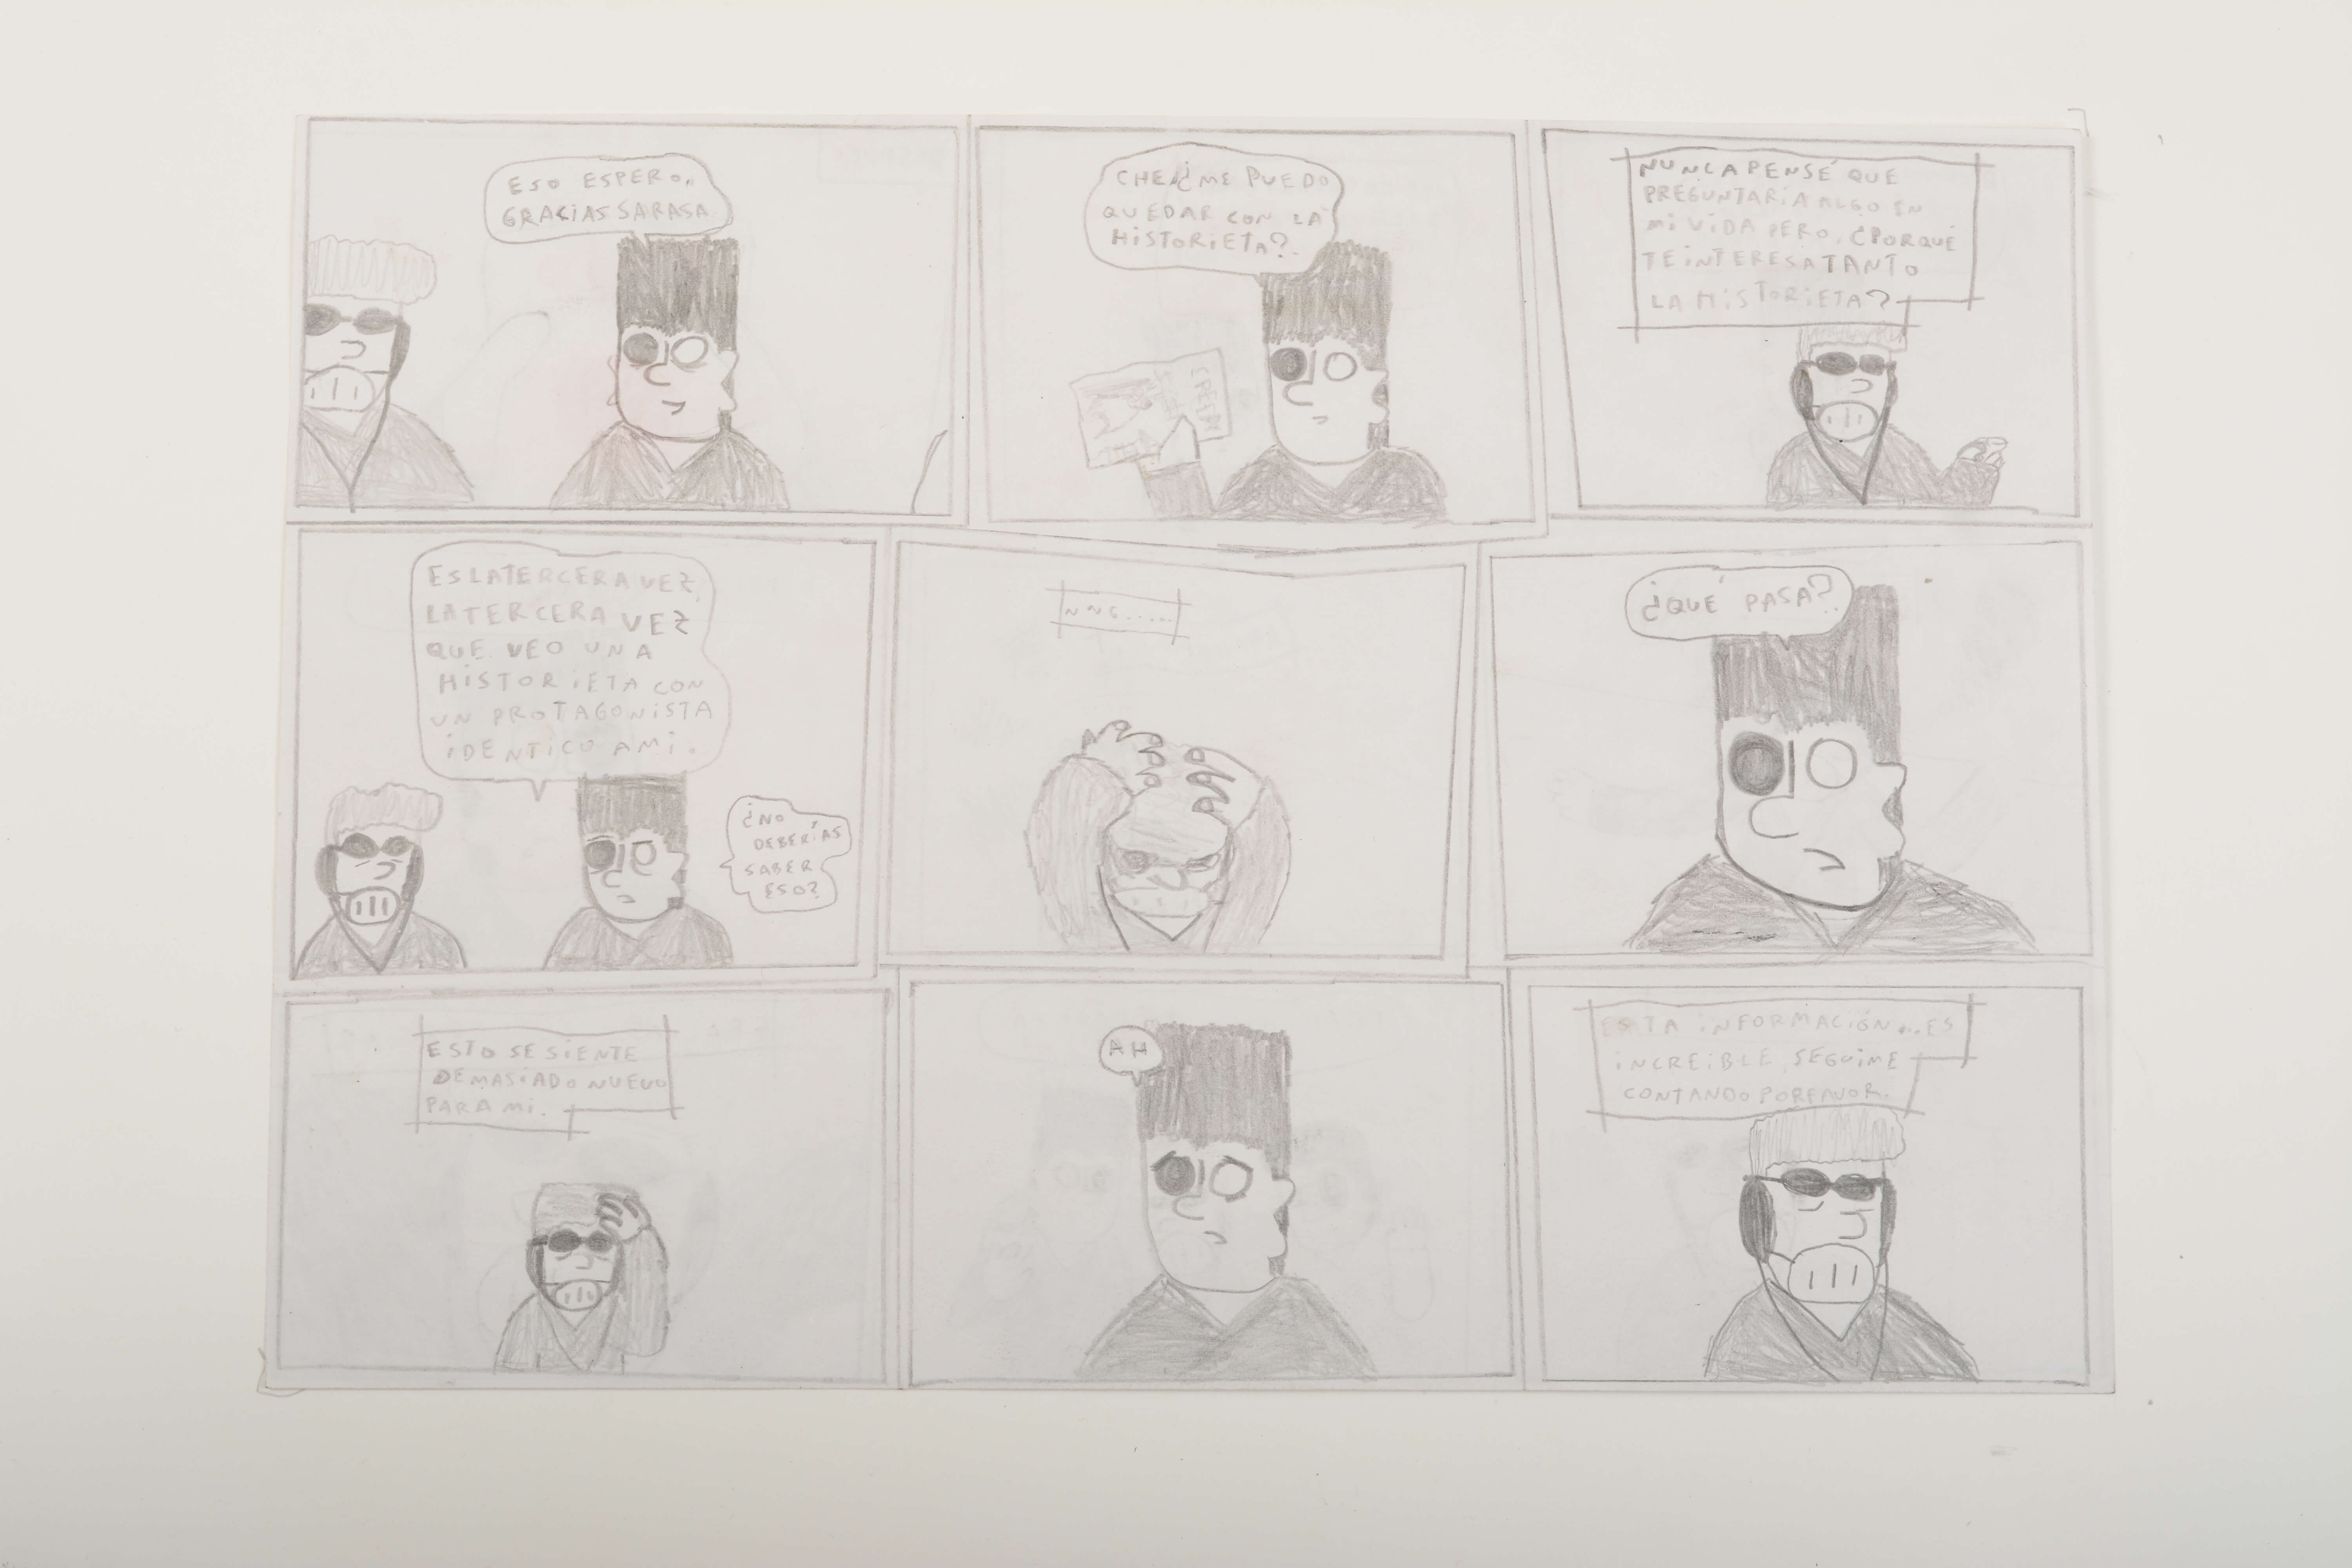 ESO ESPERO,
GRACIAS SARASA.
CHE, ¿ME PUEDO
QUEDAR CON LA
HISTORIETA?
NUNCA PENSÉ QUE
PREGUNTARÍA ALGO EN
MI VIDA PERO, ¿PORQUÉ
TE INTERESA TANTO
LA HISTORIETA?
ES LA TERCERA VEZ,
LA TERCERA VEZ
QUE VEO UNA
HISTORIETA CON
UN PROTAGONISTA
IDENTICO A MI.
¿NO
DEBERÍAS
SABER
ESO?
NNG.....
¿QUÉ PASA?
ESTO SE SIENTE
DEMASIADO NUEVO
PARA MI.
AH
ESTA INFORMACIÓN...ES
INCREIBLE, SEGUIME
CONTANDO PORFAVOR.